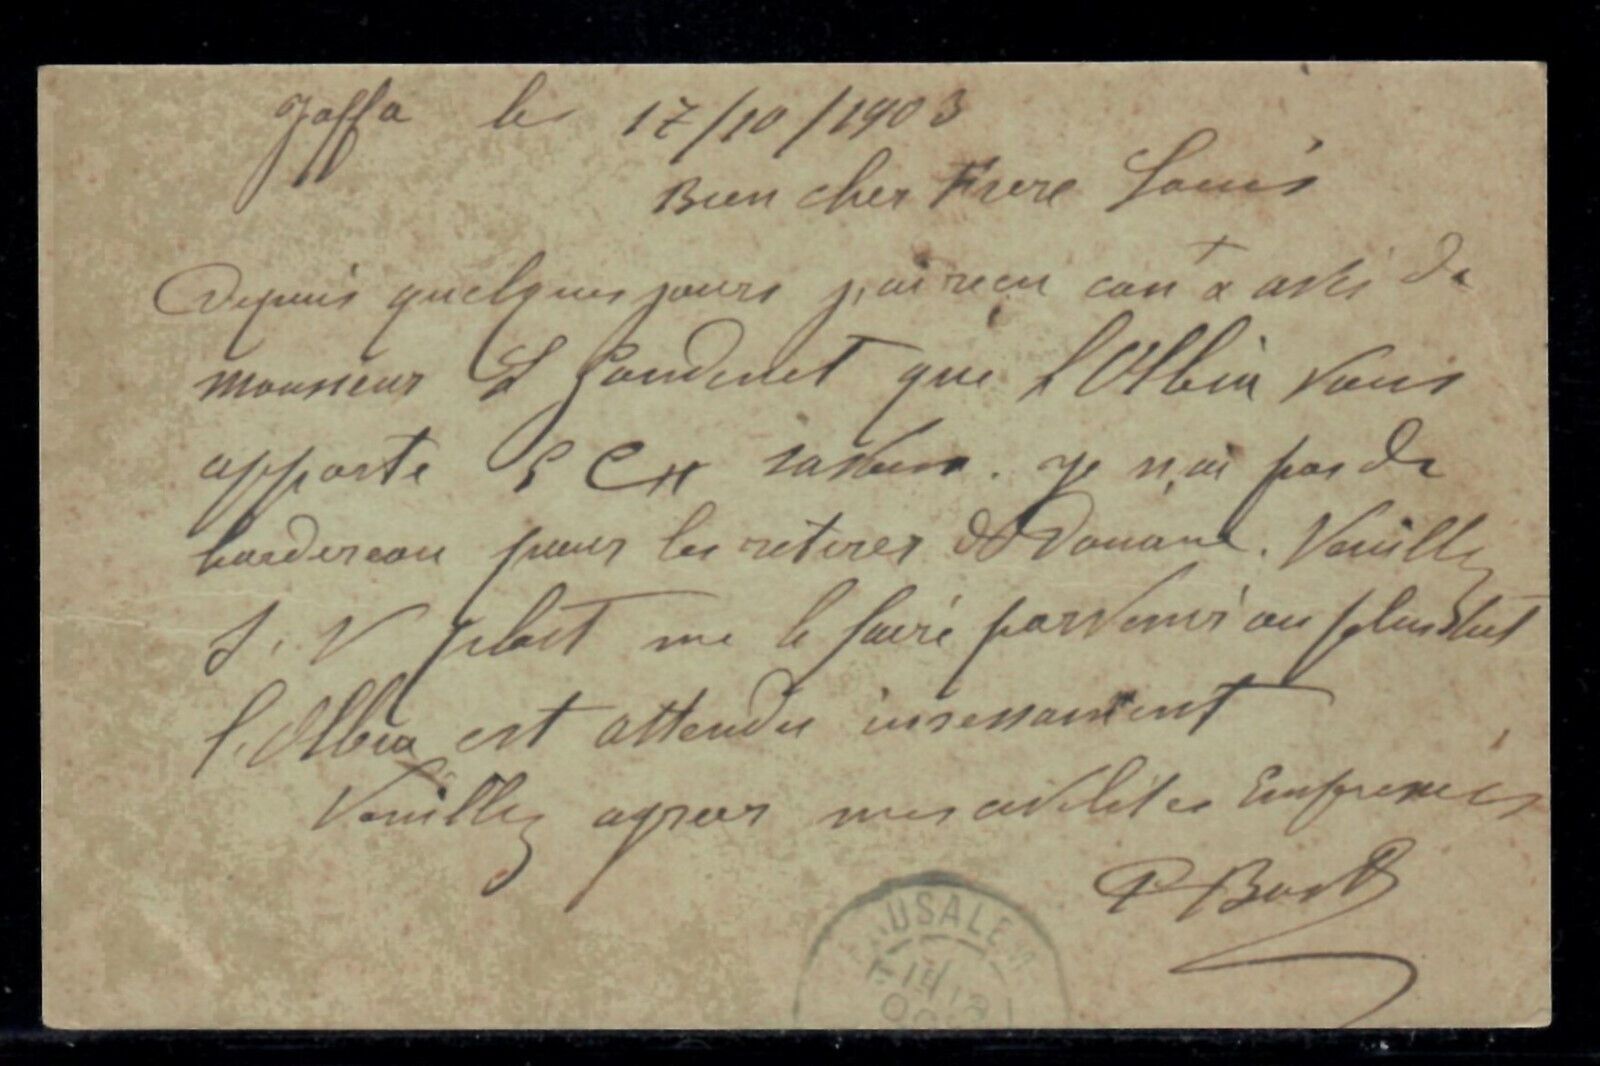 Jaffa le 17/10/1903
Bien cher Frere Louis
Depuis quelques jours j'ai recu avis de
monsieur L que l'Albia vous
apporte 5 savon. je n'ai pas de
bordereau pour les retirer de Douane. Veuillez
S. V plait me le faire parvenir au plus tot
l'Albia est attendu incessament
Veuillez agreer mes civilites Empressées
P.
JERUSALEM